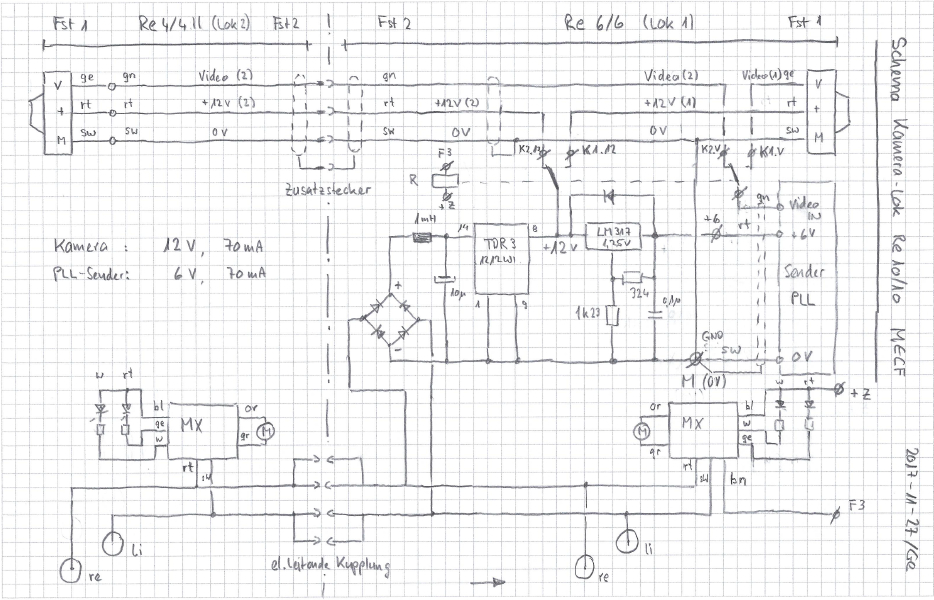 Fst 1
Re 4/4 II (Lok 2)
Fst 2
Fst 2
Re 6/6 (Lok 1)
Fst 1
V
ge
gn
Video (2)
gn
Video (2)
Video (1)
ge
V
+
rt
rt
+12V (2)
rt
+12V (2)
+12V (1)
rt
+
M
sw
sw
0V
sw
0V
0V
sw
M
Zusatzstecker
F3
R
+Z
K2.12
K1.12
K2.V
K1.V
Kamera : 12 V, 70 mA
PLL-Sender: 6 V, 70 mA
1mH
14
TDR 3
1212WI
8
1
9
10µ
+
-
+12V
LM317
1,25V
324
1k23
0,1µ
+6
rt
gn
Video
IN
+6V
Sender
PLL
GND
sw
0V
M (0V)
w
rt
bl
ge
w
MX
or
gr
M
rt
sw
or
M
gr
MX
bl
w
ge
w
rt
+Z
rt
sw
bn
F3
li
re
el. leitende Kupplung
li
re
Schema Kamera-Lok Re 10/10 MECF
2017-11-27/Ge